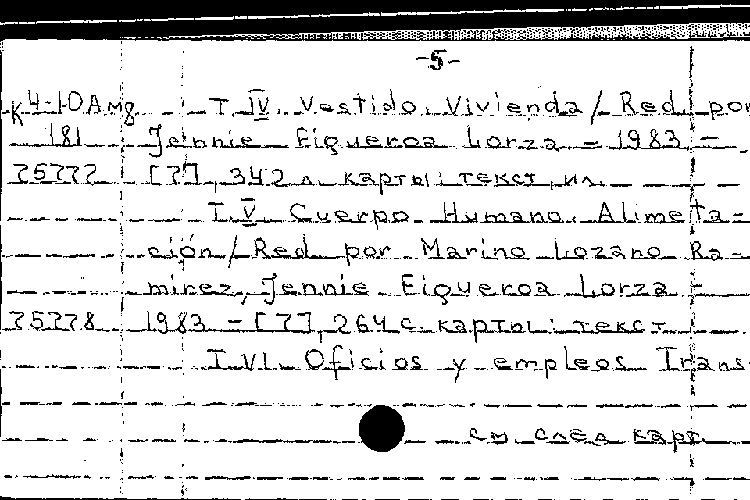 -5-
К4-10Амв T. IV. Vestido. Vivienda / Red. por
181 Jennie Figueroa Lorza – 1983 –
75777 [7], 342 л. карты; текст, ил.
T. V Cuerpo Humano. Alimeta-
ción / Red por Marino Lozano Ra-
mirez, Jennie Figueroa Lorza –
75778 1983 – [7], 264 с. карты; текст
T. VI. Oficios y empleos Trans-
см след карт.